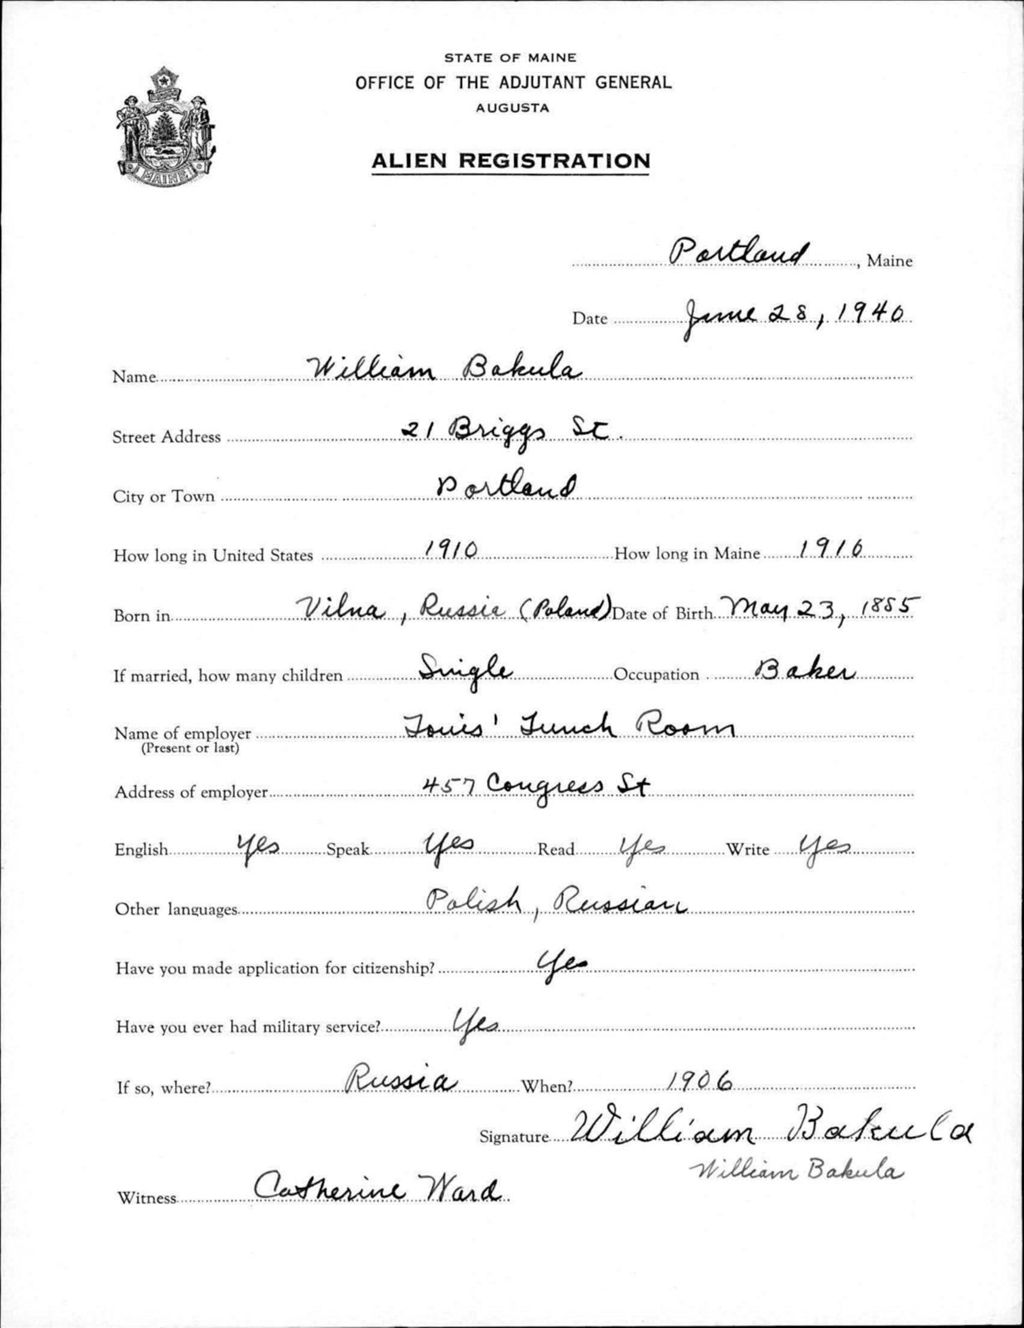 STATE OF MAINE
OFFICE OF THE ADJUTANT GENERAL
AUGUSTA
ALIEN REGISTRATION
MAINE
Portland, Maine
Date June 28, 1940
Name William Bakula
Street Address 21 Briggs St.
City or Town Portland
How long in United States 1910 How long in Maine 1916
Born in Vilna, Russia (Poland) Date of Birth May 23, 1885
If married, how many children Single Occupation Baker
Name of employer Louis' Lunch Room
(Present or last)
Address of employer 457 Congress St
English Yes Speak Yes Read Yes Write Yes
Other languages Polish, Russian
Have you made application for citizenship? Yes
Have you ever had military service? Yes
If so, where? Russia When? 1906
Signature William Bakula
William Bakula
Witness Catherine Ward